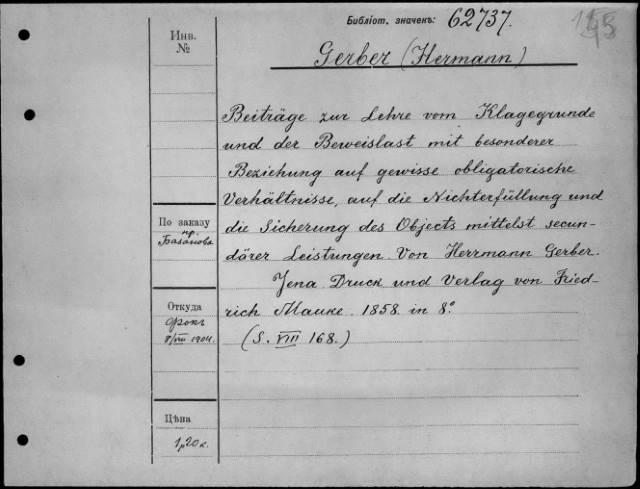 Библіот. значекъ: 62737.
Gerber (Hermann)
Инв. №
Beiträge zur Lehre vom Klagegrunde
und der Beweislast mit besonderer
Beziehung auf gewisse obligatorische
Verhältnisse, auf die Nichterfüllung und
die Sicherung des Objects mittelst secun-
därer Leistungen. Von Herrmann Gerber.
Jena Druck und Verlag von Fried-
rich Mauke 1858. in 8°
(S. VIII 168.)
По заказу
пр.
Базанова
Откуда
Фокъ
8/VIII 1904.
Цѣна
1р20к.